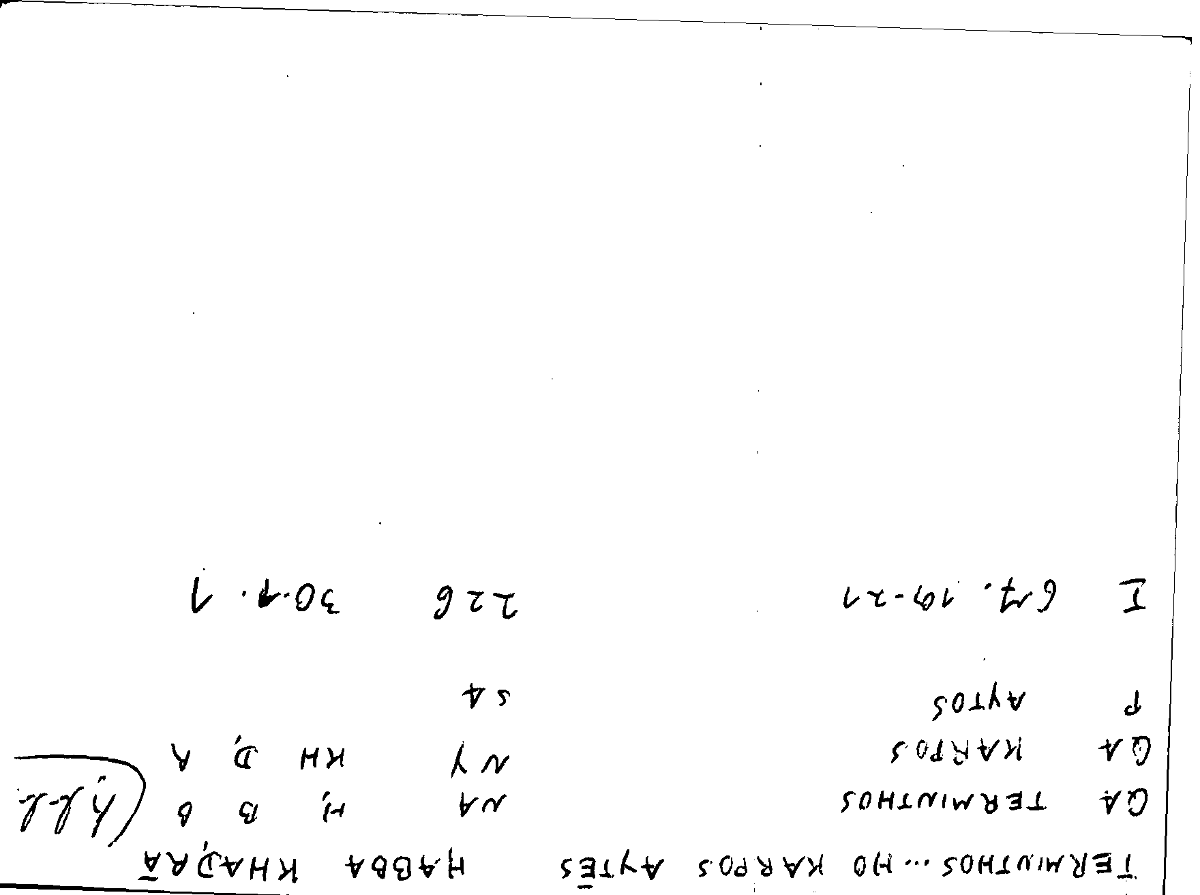 TERMINTHOS ... HO KARPOS AYTĒS ḤABBA KHAḌRĀ
QA TERMINTHOS NA Ḥ B B (ḥbb
QA KARPOS NY KH Ḍ R
P AYTOS SA
I 67.19-21 226 30.1.1